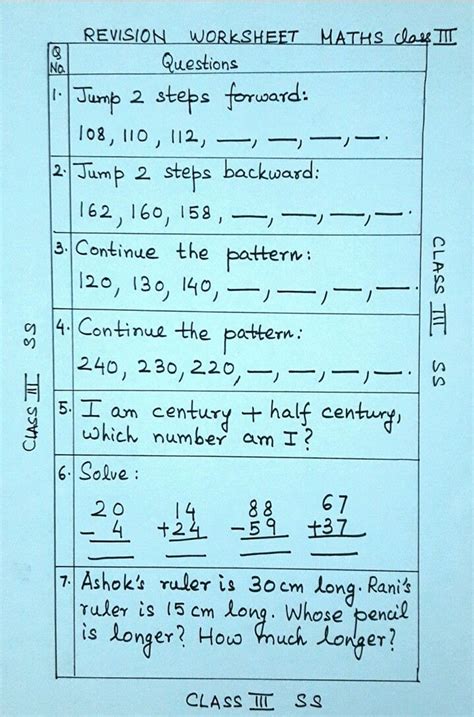 REVISION WORKSHEET MATHS class III
Q No. Questions
1. Jump 2 steps forward:
108, 110, 112, __, __, __, __.
2. Jump 2 steps backward:
162, 160, 158, __, __, __, __.
3. Continue the pattern:
120, 130, 140, __, __, __, __.
4. Continue the pattern:
240, 230, 220, __, __, __, __.
5. I am century + half century,
which number am I?
6. Solve:
20 14 88 67
- 4 +24 -59 +37
7. Ashok's ruler is 30cm long. Rani's
ruler is 15 cm long. Whose pencil
is longer? How much longer?
CLASS III SS
CLASS III SS
CLASS III SS